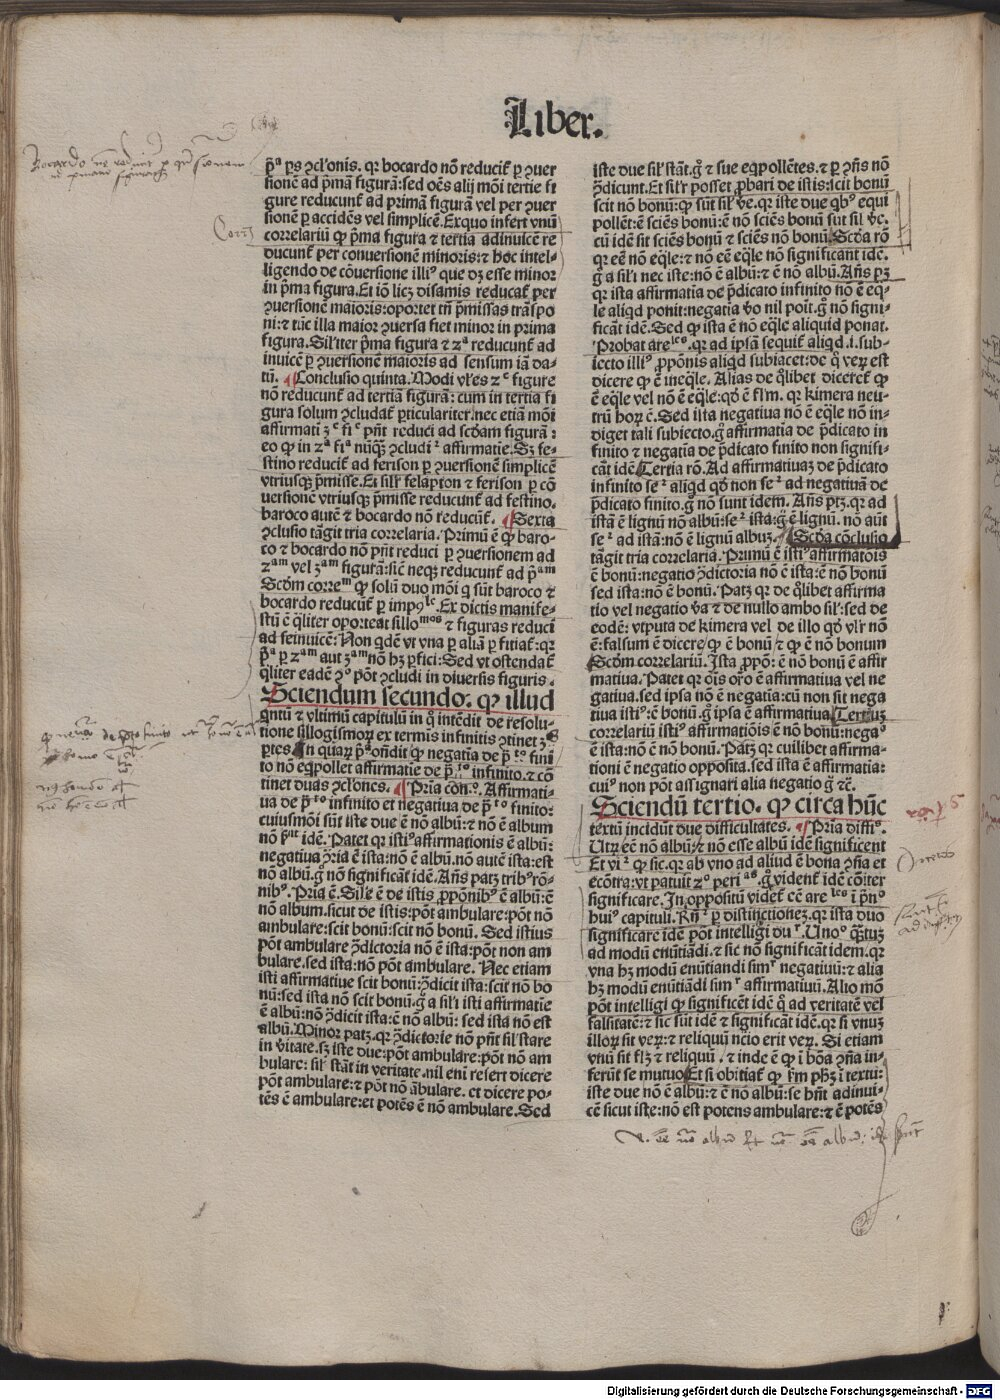 Liber.
p̄ᵃ ꝑs ꝯcl'onis. qꝛ bocardo nō reducit̄ ꝑ ꝯuer
sionē ad pͥmā figurā: sed oēs alij mōi tertie fi
gure reducunt̄ ad primā figurā vel per ꝯuer
sionē ꝑ accidēs vel simplicē. Ex quo infert vnū
correlariū ꝙ pͥma figura ⁊ tertia adinuicē re
ducunt̄ per conuersionē minoris: ⁊ hoc intel⸗
ligendo de cōuersione illiꝰ que dꝫ esse minor
in pͥma figura. Et iō licꝫ disamis reducat̄ per
ꝯuersionē maioris: oportet tn̄ pͥmissas trāspo
ni: ⁊ tūc illa maior ꝯuersa fiet minor in prima
figura. Sil'iter pͥma figura ⁊ zᵃ reducunt̄ ad
inuicē ꝑ ꝯuersionē maioris ad sensum iā da⸗
tū. ¶ Conclusio quinta. Modi vl'es zᵉ figure
nō reducunt̄ ad tertiā figurā: cum in tertia fi
gura solum ꝯcludat̄ ꝑticulariter. nec etiā mōi
affirmati ꝫᵉ fiᵉ pn̄t reduci ad scd̄am figurā:
eo ꝙ in zᵃ fiᵃ nūqꝫ ꝯcludiᵗ affirmatie. Sꝫ fe⸗
stino reducit̄ ad ferison ꝑ ꝯuersionē simplicē
vtriusqꝫ pͥmisse. Et sil'r felapton ⁊ ferison ꝑ cō
uersionē vtriusqꝫ pͥmisse reducunt̄ ad festino.
baroco autē ⁊ bocardo nō reducūt̄. ¶ Sexta
ꝯclusio tāgit tria correlaria. Primū ē ꝙ baro⸗
co ⁊ bocardo nō pn̄t reduci ꝑ ꝯuersionem ad
zᵃᵐ vel ꝫᵃᵐ figurā: sic̄ neqꝫ reducunt̄ ad pᵃᵐ
Scd̄m correᵐ ꝙ solū duo mōi q̄ sūt baroco ⁊
bocardo reducūt̄ ꝑ impoˡᵉ. Ex dictis manife⸗
stū ē q̄liter oporteat silloᵐᵒˢ ⁊ figuras reduci
ad seinuicē: Non qdē vt vna ꝑ aliā ꝑficiat̄: qꝛ
p̄ᵃ ꝑ zᵃᵐ aut ꝫᵃᵐ nō hꝫ ꝑfici: Sed vt ostendat̄
q̄liter eadē ꝯᵒ pōt ꝯcludi in diuersis figuris.
Sciendum secundo. ꝙ illud
qntū ⁊ vltimū capitulū in q̊ intēdit de resolu⸗
tione sillogismoꝝ ex termis infinitis ꝯtinet ꝫˢ
ꝑtes. In quaꝝ pͥᵃ on̄dit ꝙ negatia de pͥᵗᵒ fini
to nō eqͥpollet affirmatie de pͥᵗᵒ infinito. ⁊ cō
tinet duas ꝯcl'ones. ¶ Pͥia con̄ᵒ. Affirmati⸗
ua de pͥᵗᵒ infinito et negatiua de pͥᵗᵒ finito:
cuiusmōi sūt iste due ē nō albū: ⁊ nō ē album
nō pˢᵘⁿᵗ idē. Patet qꝛ istiꝰ affirmationis ē albū:
negatiua ꝯͥria ē ista: nō ē albū. nō autē ista: est
nō albū. g̊ nō significāt idē. An̄s patꝫ tribꝰ rō⸗
nibꝰ. Pͥria ē. Sil'e ē de istis ꝓpōnibꝰ ē albū: ē
nō album. sicut de istis: pōt ambulare: pōt nō
ambulare: scit bonū: scit nō bonū. Sed istius
pōt ambulare ꝯ̄dictoria nō ē ista: pōt non am
bulare. sed ista: nō pōt ambulare. Nec etiam
isti affirmatiue scit bonū: ꝯ̄dicit ista: scit nō bo
nū: sed ista nō scit bonū. g̊ a sil'i isti affirmatie
ē albū: nō ꝯ̄dicit ista: ē nō albū: sed ista nō est
albū. Minor patꝫ. qꝛ ꝯ̄dictorie nō pn̄t sil' stare
in v̄itate. sꝫ iste due: pōt ambulare: pōt nō am
bulare: sil' stāt in veritate. nil eni refert dicere
pōt ambulare: ⁊ pōt nō ābulare. et dicere po⸗
tēs ē ambulare: et potēs ē nō ambulare. Sed
iste due sil' stāt. g̊ ⁊ sue eqͥpollētes. ⁊ ꝑ ꝯn̄s nō
ꝯ̄dicunt. Et sil'r posset ꝓbari de istis: scit bonū
scit nō bonū: ꝙ sūt sil' v̄e. qꝛ iste due qbꝰ equi
pollēt: ē sciēs bonū: ē nō sciēs bonū sūt sil' v̄e.
cū idē sit sciēs bonū ⁊ sciēs nō bonū. Scd̄a rō
qꝛ eē nō eq̄le: ⁊ nō eē eq̄le nō significant idē.
g̊ a sil'i nec iste: nō ē albū: ⁊ ē nō albū. An̄s pꝫ
qꝛ ista affirmatia de pͥdicato infinito nō ē eq̄⸗
le aliqd ponit: negatia v̊o nil poīt. g̊ nō signi⸗
ficāt idē. Sed ꝙ ista ē nō eq̄le aliquid ponat.
Probat areˡᵉˢ. qꝛ ad ipsā sequit̄ aliqd. i. sub⸗
iecto illiꝰ ꝓpōnis aliqd subiacet: de q̊ veꝝ est
dicere ꝙ ē ineq̄le. Alias de q̊libet diceret̄ ꝙ
ē eq̄le vel nō ē eq̄le: qd̄ ē fl'm. qꝛ kimera neu⸗
trū hoꝝ ē. Sed ista negatiua nō ē eq̄le nō in⸗
diget tali subiecto. g̊ affirmatia de pͥdicato in
finito ⁊ negatia de pͥdicato finito non signifi⸗
cāt idē. Tertia rō. Ad affirmatiuaꝫ de pͥdicato
infinito seᵗ aliqd qd̄ non seᵗ ad negatiuā de
pͥdicato finito. g̊ nō sunt idem. An̄s ptꝫ. qꝛ ad
istā ē lignū nō albū: seᵗ ista: g̊ ē lignū. nō aūt
seᵗ ad istā: nō ē lignū albuꝫ. ¶ Scd̄a cōclusio
tāgit tria correlaria. Primū ē istiꝰ affirmatiōis
ē bonū: negatio ꝯ̄dictoria nō ē ista: ē nō bonū
sed ista: nō ē bonū. Patꝫ qꝛ de q̊libet affirma
tio vel negatio v̄a ⁊ de nullo ambo sil': sed de
eodē: vtputa de kimera vel de illo qd̄ vl'r nō
ē: falsum ē dicere ꝙ ē bonū ⁊ ꝙ ē nō bonum
Scd̄m correlariū. Ista ꝓpōᵒ: ē nō bonū ē affir
matiua. Patet qꝛ oīs or̊o ē affirmatiua vel ne
gatiua. sed ipsa nō ē negatia: cū non sit nega
tiua istiꝰ: ē bonū. g̊ ipsa ē affirmatiua. Tertiuꝫ
correlariū istiꝰ affirmatiōis ē nō bonū: negaᵒ
ē ista: nō ē nō bonū. Patꝫ qꝛ cuilibet affirma⸗
tioni ē negatio opposita. sed ista ē affirmatia:
cuiꝰ non pōt assignari alia negatio g̊ ⁊c̄.
Sciendū tertio. ꝙ circa hūc
textū incidūt due difficultates. ¶ Pͥria diffiᵒ.
Utꝝ eē nō albū: ⁊ nō esse albū idē significent
Et viᵗ ꝙ sic. qꝛ ab vno ad aliud ē bona ꝯn̄a et
ecōtra: vt patuit zᵒ periᵃˢ. g̊ vident̄ idē cōiter
significare. In oppositū videt̄ eē areˡᵉˢ ī pͥnᵒ
huiꝰ capituli. Rn̄ᵗ ꝑ distīctionez. qꝛ ista duo
significare idē pōt intelligi duʳ. Unoᵒ q̄ꝫtuꝫ
ad modū enūtiādi. ⁊ sic nō significāt idem. qꝛ
vna hꝫ modū enūtiandi simʳ negatiuū: ⁊ alia
hꝫ modū enūtiandi simʳ affirmatiuū. Alio mō
pōt intelligi ꝙ significēt idē q̊ ad veritatē vel
falsitatē: ⁊ sic sūt idē ⁊ significāt idē. qꝛ si vnuꝫ
illoꝝ sit veꝝ: ⁊ reliquū ncͥio erit veꝝ. Si etiam
vnū sit fl'ꝫ ⁊ reliquū. ⁊ inde ē ꝙ ī bōa ꝯn̄a in⸗
ferūt se mutuo. Et si obijciat̄ ꝙ fm̄ ph̄ꝫ ī textu:
iste due nō ē albū: ⁊ ē nō albū: se hn̄t adinui⸗
cē sicut iste: nō est potens ambulare: ⁊ ē potēs
Digitalisierung gefördert durch die Deutsche Forschungsgemeinschaft - DFG